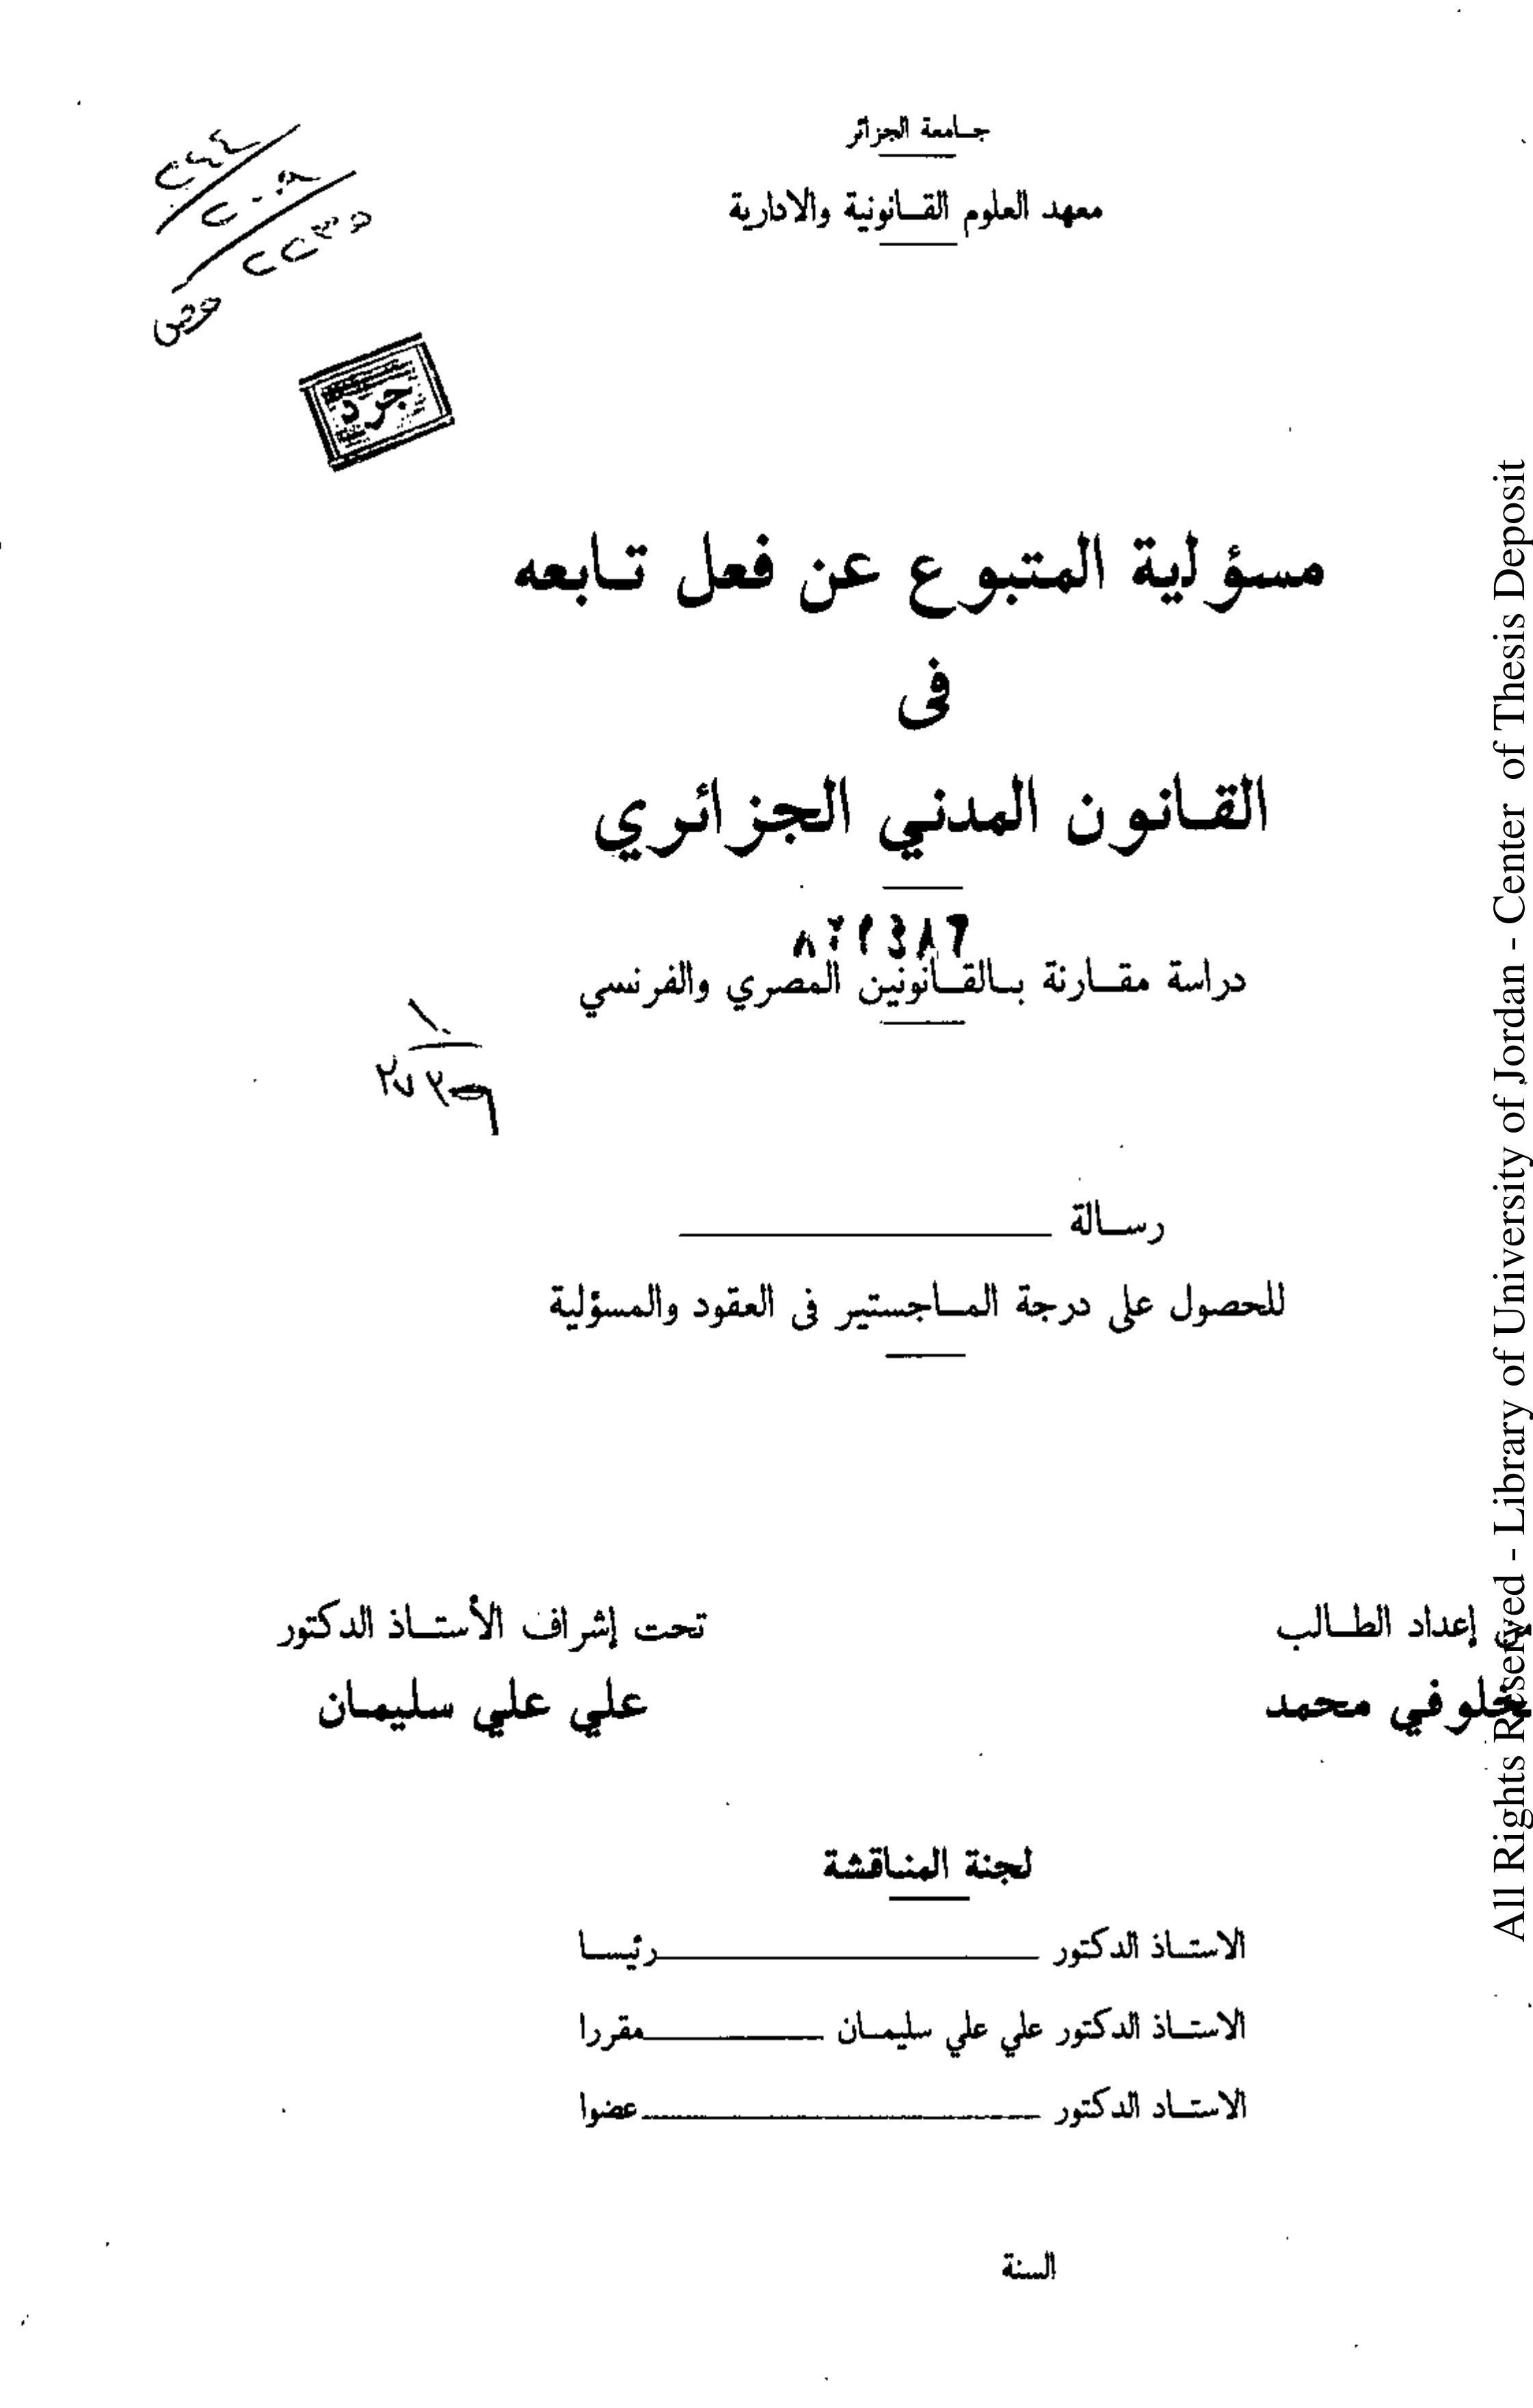 جامعة الجزائر
معهد العلوم القانونية والادارية
جرد
مسؤولية المتبوع عن فعل تابعه
فى
القانون المدني الجزائري
دراسة مقارنة بالقانونين المصري والفرنسي
رسالة
للحصول على درجة الماجستير فى العقود والمسؤلية
إعداد الطالب
تحت إشراف الأستاذ الدكتور
محمد
علي علي سليمان
لجنة المناقشة
الاستاذ الدكتور رئيسا
الاستاذ الدكتور علي علي سليمان مقررا
الاستاد الدكتور عضوا
السنة
All Rights Reserved - Library of University of Jordan - Center of Thesis Deposit